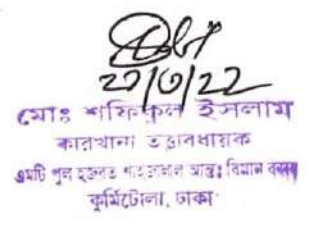 ২৩/৩/২২
মোঃ শফিকুল ইসলাম
কারখানা তত্ত্বাবধায়ক
এমটি পুল হজরত শাহজালাল আন্তঃ বিমান বন্দর
কুর্মিটোলা, ঢাকা